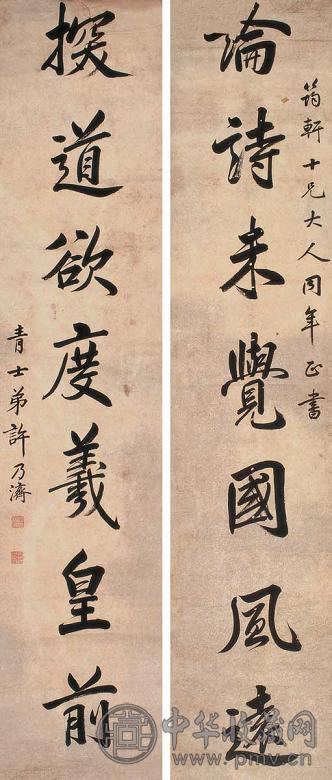 筠軒十兄大人同年正書
論詩未覺國風遠
探道欲度羲皇前
青士弟許乃濟
中华收藏网
www.pmv.cn